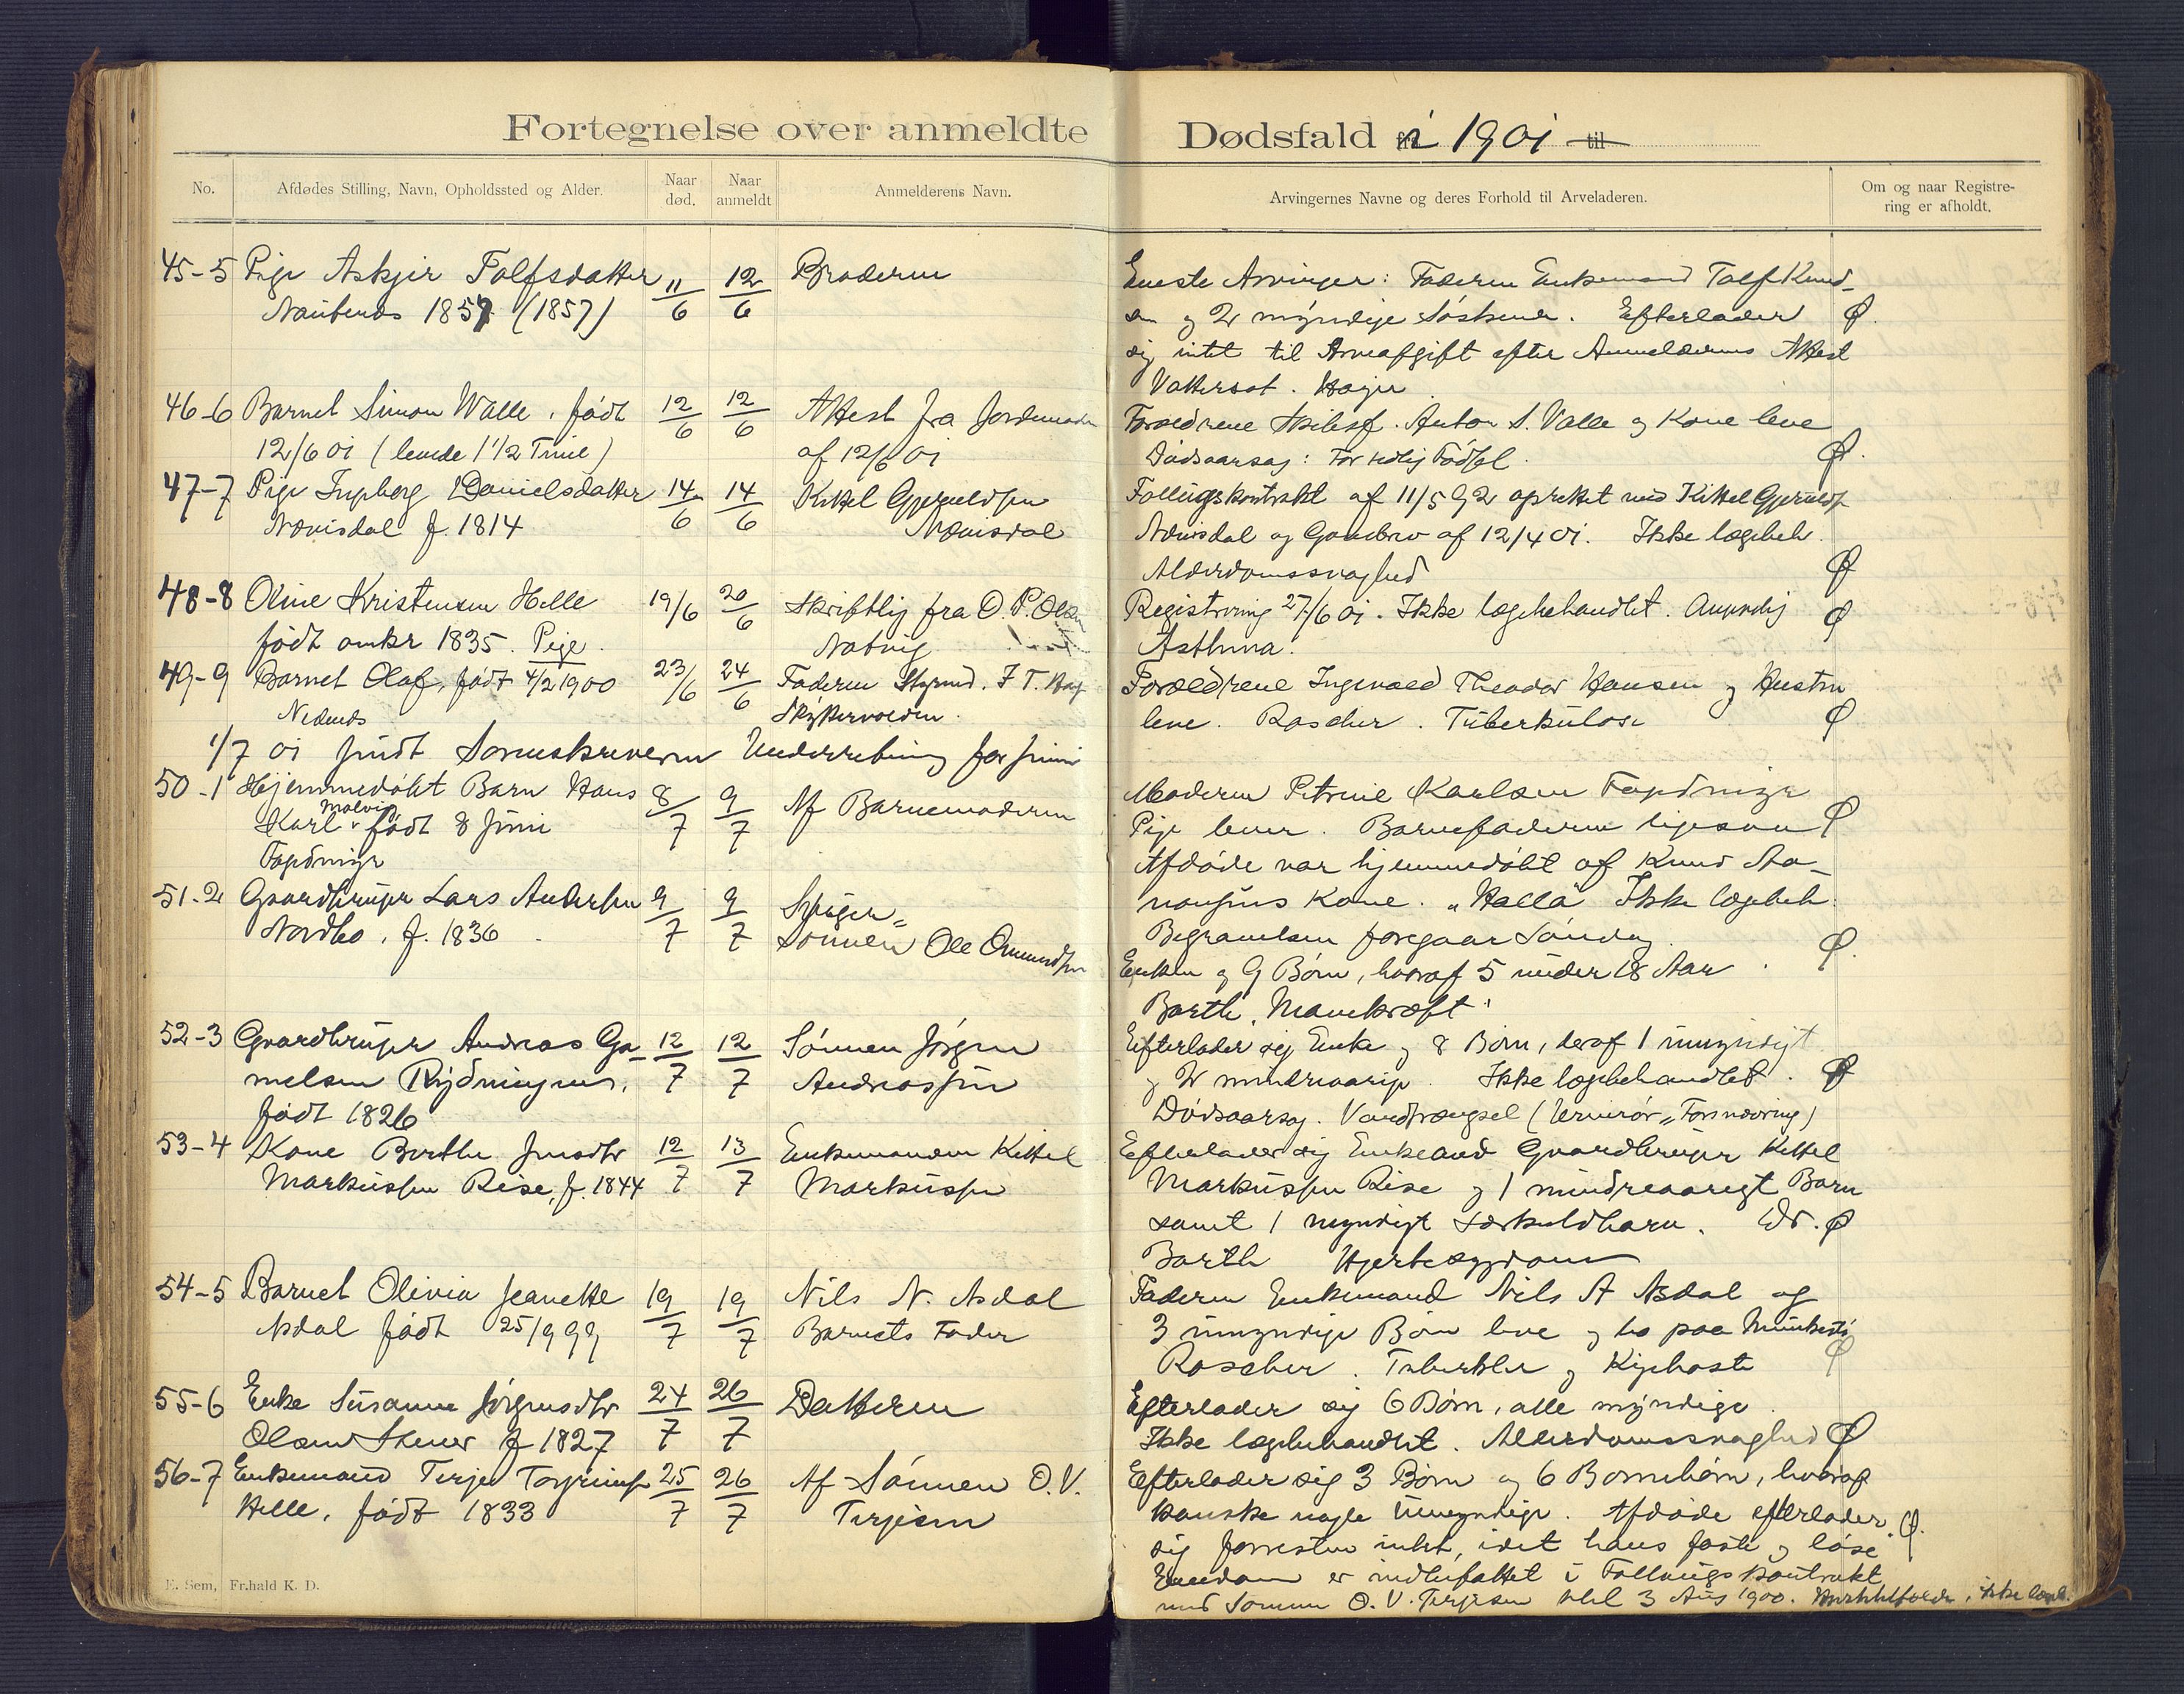 Fortegnelse over anmeldte Dødsfald i 1901 til
No.
Afdødes Stilling, Navn, Opholdssted og Alder.
Naar død.
Naar anmeldt
Anmelderens Navn.
Arvingernes Navne og deres Forhold til Arveladeren.
Om og naar Registrering er afholdt.
45-5 Pige Askjer Tolfsdatter 11/6 12/6 Broderen
1857 (1857)
Eneste Arvinger: Faderen Enkemand Tolf Knud-
sen og 2 myndige Søskende. Efterlader Ø.
sig intet til Arveafgift efter Anmelderens Attest
Vattersot.
46-6 Barnet Simon Walle, født 12/6 12/6 Attest fra Jordemoder
12/6 01 (levede 1 1/2 Time) af 12/6 01
Forældrene Skibsf. Anton S. Valle og Kone leve
Dødsaarsag: For tidlig Fødsel. Ø.
47-7 Pige Ingeborg Danielsdatter 14/6 14/6 Kittel Gjeruldsen
Nævisdal f. 1814 Nævisdal
Follugskontrakt af 11/5 92 oprettet med Kittel Gjerulds.
Nævisdal og Gavebrev af 12/4 01. Ikke lægebeh.
Alderdomssvaghed Ø
48-8 Oline Kristensen Helle 19/6 20/6 Skriftlig fra O. P. Olsen
født omkr 1835. Pige. Natvig
Registrering 27/6 01. Ikke lægebehandlet. Ø
Asthma.
49-9 Barnet Olaf, født 4/2 1900 23/6 24/6 Faderen Styrmd. I. T. Han
Nedenes
Forældrene Ingevald Theodor Hansen og Hustru
leve. Roscher. Tuberkulose Ø
1/7 01 sendt Sorenskriveren Underretning for Juni
50-1 Hjemmedøbt Barn Hans 8/7 9/7 Af Barnemoderen
Malvin
Karl født 8 Juni
Moderen Petrine Karlsen
Pige lever. Barnefaderen ligesaa Ø
Afdøde var hjemmedøbt af Knud Aa-
nonsens Kone. "Halla" Ikke lægebeh.
Begravelsen foregaar Søndag.
51-2 Gaardbruger Lars Andersen 9/7 9/7
Nordbo, f. 1836. Sønnen Ole Omundsen
Enken og 9 Børn, hvoraf 5 under 18 Aar. Ø.
Barth. Mavekræft.
52-3 Gaardbruger Andreas Ga- 12/7 12/7 Sønnen Jørgen
melsen Rydningen, Andreassen
født 1826
Efterlader sig Enke og 8 Børn, deraf 1 umyndigt
og 2 mindreaarige. Ikke lægebehandlet. Ø
Dødsaarsag. Vandtrængsel (Urinrør-Forsnævring)
53-4 Kone Berthe Jensdtr 12/7 13/7 Enkemanden Kittel
Markussen Rise, f. 1844 Markussen
Efterlader sig Enkemand Gaardbruger Kittel
Markussen Rise og 1 mindreaarigt Barn
samt 1 myndigt særkuldbarn. Dr. Ø
Barth Hjertesygdom
54-5 Barnet Olivia Jeanette 19/7 19/7 Nils N. Asdal
Asdal født 25/9 99 Barnets Fader
Faderen Enkemand Nils A Asdal og
3 umyndige Børn leve og bo paa
Roscher. Tuberkler og Kighoste Ø
55-6 Enke Susanne Jørgensdtr 24/7 26/7 Datteren
Olsen f 1827
Efterlader sig 6 Børn, alle myndige.
Ikke lægebehandlet. Alderdomssvaghed Ø
56-7 Enkemand Terje Torjusen 25/7 26/7 Af Sønnen O. V.
Helle, født 1833 Terjesen
Efterlader sig 3 Børn og 6 Børnebørn, hvoraf
kanske nogle umyndige. Afdøde efterlader Ø.
sig forresten intet, idet hans faste og løse
Eiendom er indbefattet i Follaugskontrakt
med Sønnen O. V. Terjesen thl 3 Aug 1900. ikke lægeb.
E. Sem, Fr.hald K. D.